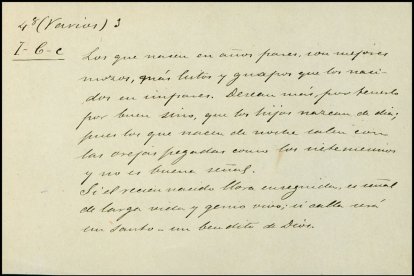 4º (Varios) 3
I-C-c
Los que nacen en años pares, son mejores
mozos, más listos y guapos que los naci-
dos en impares. Desean más, por tenerlo
por buen sino, que los hijos nazcan de dia;
pues los que nacen de noche salen con
las orejas pegadas como los sietemesinos
y no es buena señal.
Si el recien nacido llora enseguida, es señal
de larga vida y genio vivo; si calla será
un santo - un bendito de Dios.